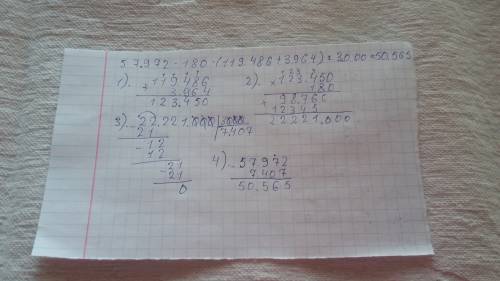 57.972 - 180 · (119.486 + 3964) : 30.00 = 50.565
1). + 119486
3.964
123.450
2) × 123.450
180
+ 98.765
12345
22221.000
3). - 22.221.000 | 3000
21 | 7407
- 12
12
- 21
21
0
4) - 57972
7407
50.565